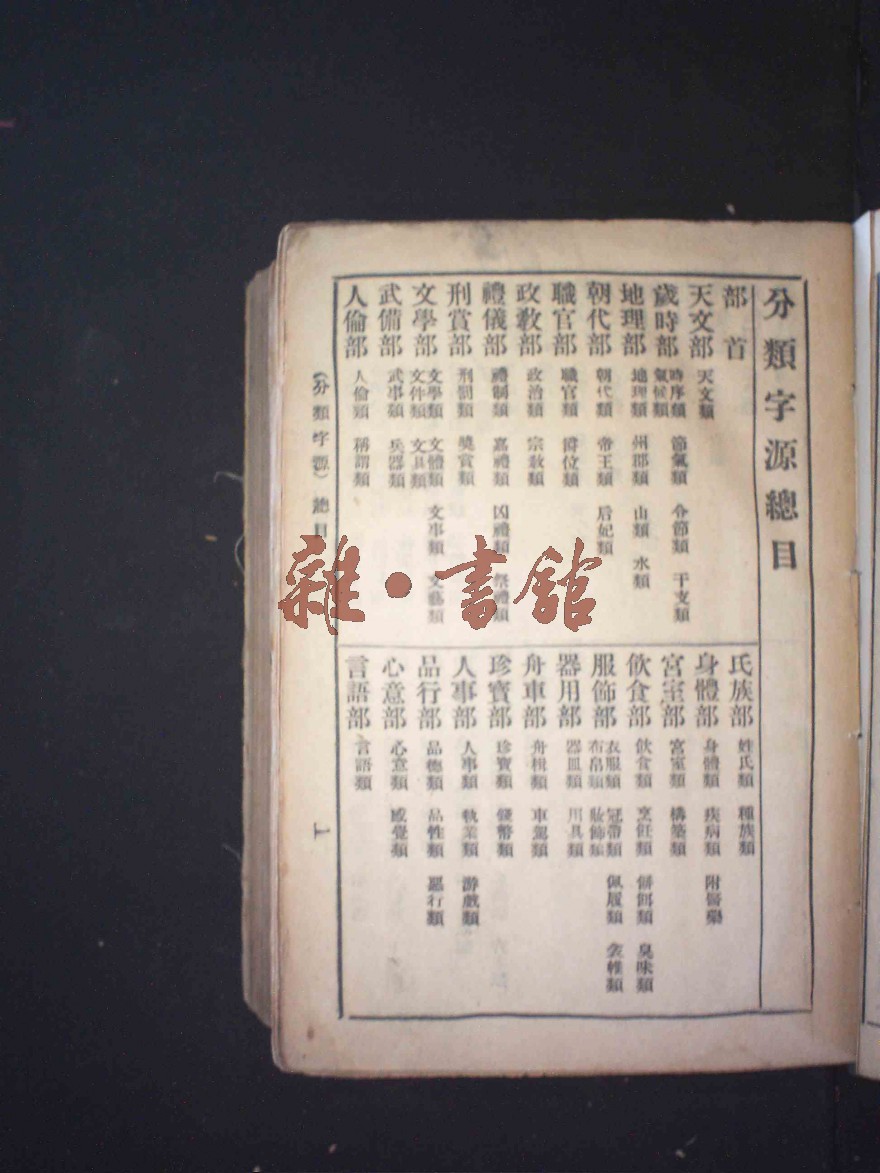 分類字源總目
部首
天文部 天文類
歲時部 時序類 氣候類 節氣類 令節類 干支類
地理部 地理類 州郡類 山類 水類
朝代部 朝代類 帝王類 后妃類
職官部 職官類 爵位類
政教部 政治類 宗教類
禮儀部 禮制類 嘉禮類 凶禮類 祭禮類
刑賞部 刑罰類 獎賞類
文學部 文學類 文件類 文體類 文具類 文事類 文藝類
武備部 武事類 兵器類
人倫部 人倫類 稱謂類
氏族部 姓氏類 種族類
身體部 身體類 疾病類 附醫藥
宮室部 宮室類 構築類
飲食部 飲食類 烹飪類 餅餌類 臭味類
服飾部 衣服類 布帛類 冠帶類 妝飾類 佩履類 衾帷類
器用部 器皿類 用具類
舟車部 舟楫類 車駕類
珍寶部 珍寶類 錢幣類
人事部 人事類 執業類 游戲類
品行部 品德類 品性類 惡行類
心意部 心意類 感覺類
言語部 言語類
(分類字源) 總目
雜·書館